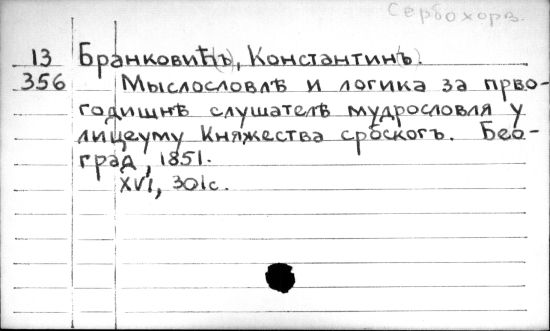 Сербохорв.
13 Бранковић(ъ), Константин(ъ).
356 Мыслословлѣ и логика за прво-
годишнѣ слушателѣ мудрословля у
лицеуму Княжества србскогъ. Бео-
град, 1851.
XVI, 301с.